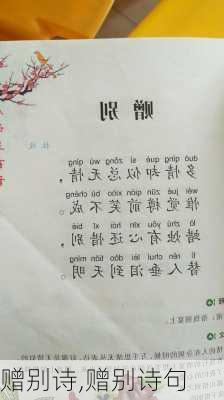 赠别
杜牧
duō qíng què sì zǒng wú qíng
多情却似总无情，
wéi jué zūn qián xiào bù chéng
惟觉樽前笑不成。
là zhú yǒu xīn hái xī bié
蜡烛有心还惜别，
tì rén chuí lèi dào tiān míng
替人垂泪到天明。
赠别诗,赠别诗句